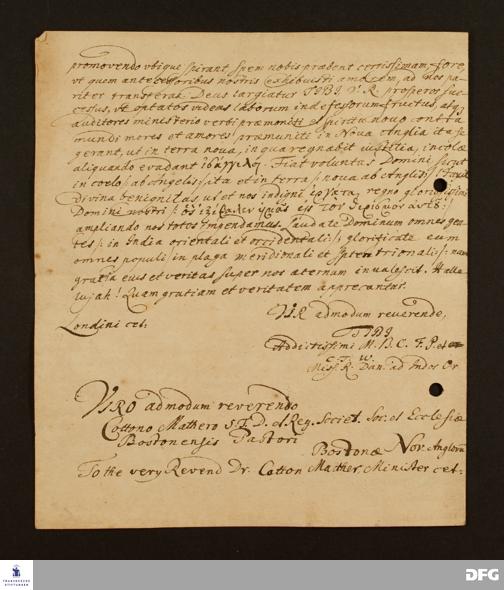 promovendo ubique spirant, spem nobis præbent certissimam, fore,
ut quem antecessoribus nostris exhibuisti amorem, ad nos pa-
riter transferas. Deus largiatur TIBI V. R. prosperos suc-
cessus, ut optatos videas laborum indefessorum fructus, atq
auditores ministerio verbi præmoniti et spiritu novo contra
mundi mores et amores præmuniti in Nova Anglia ita se
gerant, ut in terra nova, in qua regnabit iustitia, incolæ
aliquando evadant ἰσάγγελοι. Fiat voluntas Domini sicut
in coelo /: ab angelis :/ ita et in terra /: nova ab Anglis :/ Faxit
divina benignitas, ut et nos indigni ἐργάται regno gloriosissimi
Domini nostri /: ὃς ἐξέβαλεν ἡμᾶς εἰς τὸν θερισμὸν αὐτοῦ :/
ampliando nos totos impendamus. Laudate Dominum omnes gen-
tes /: in India orientali et occidentali :/ glorificate eum
omnes populi /: in plaga meridionali et septentrionali :/ nam
gratia eius et veritas super nos æternum invalescit. Halle-
lujah! Quam gratiam et veritatem apprecantur
VIR admodum reverende,
Londini cet:
TIBI
Addictissimi M. B. C. F. P. et
C. T. W.
Miss. R. Dan. ad Indos Or
VIRO admodum reverendo
Cottono Mathero S. T. D. et Reg. Societ. Soc. et Ecclesiæ
Bostonensis Pastori
Bostonæ Nov. Anglorū
To the very Revend Dr. Cotton Mather, Minister cet:
FRANCKESCHE
STIFTUNGEN
DFG